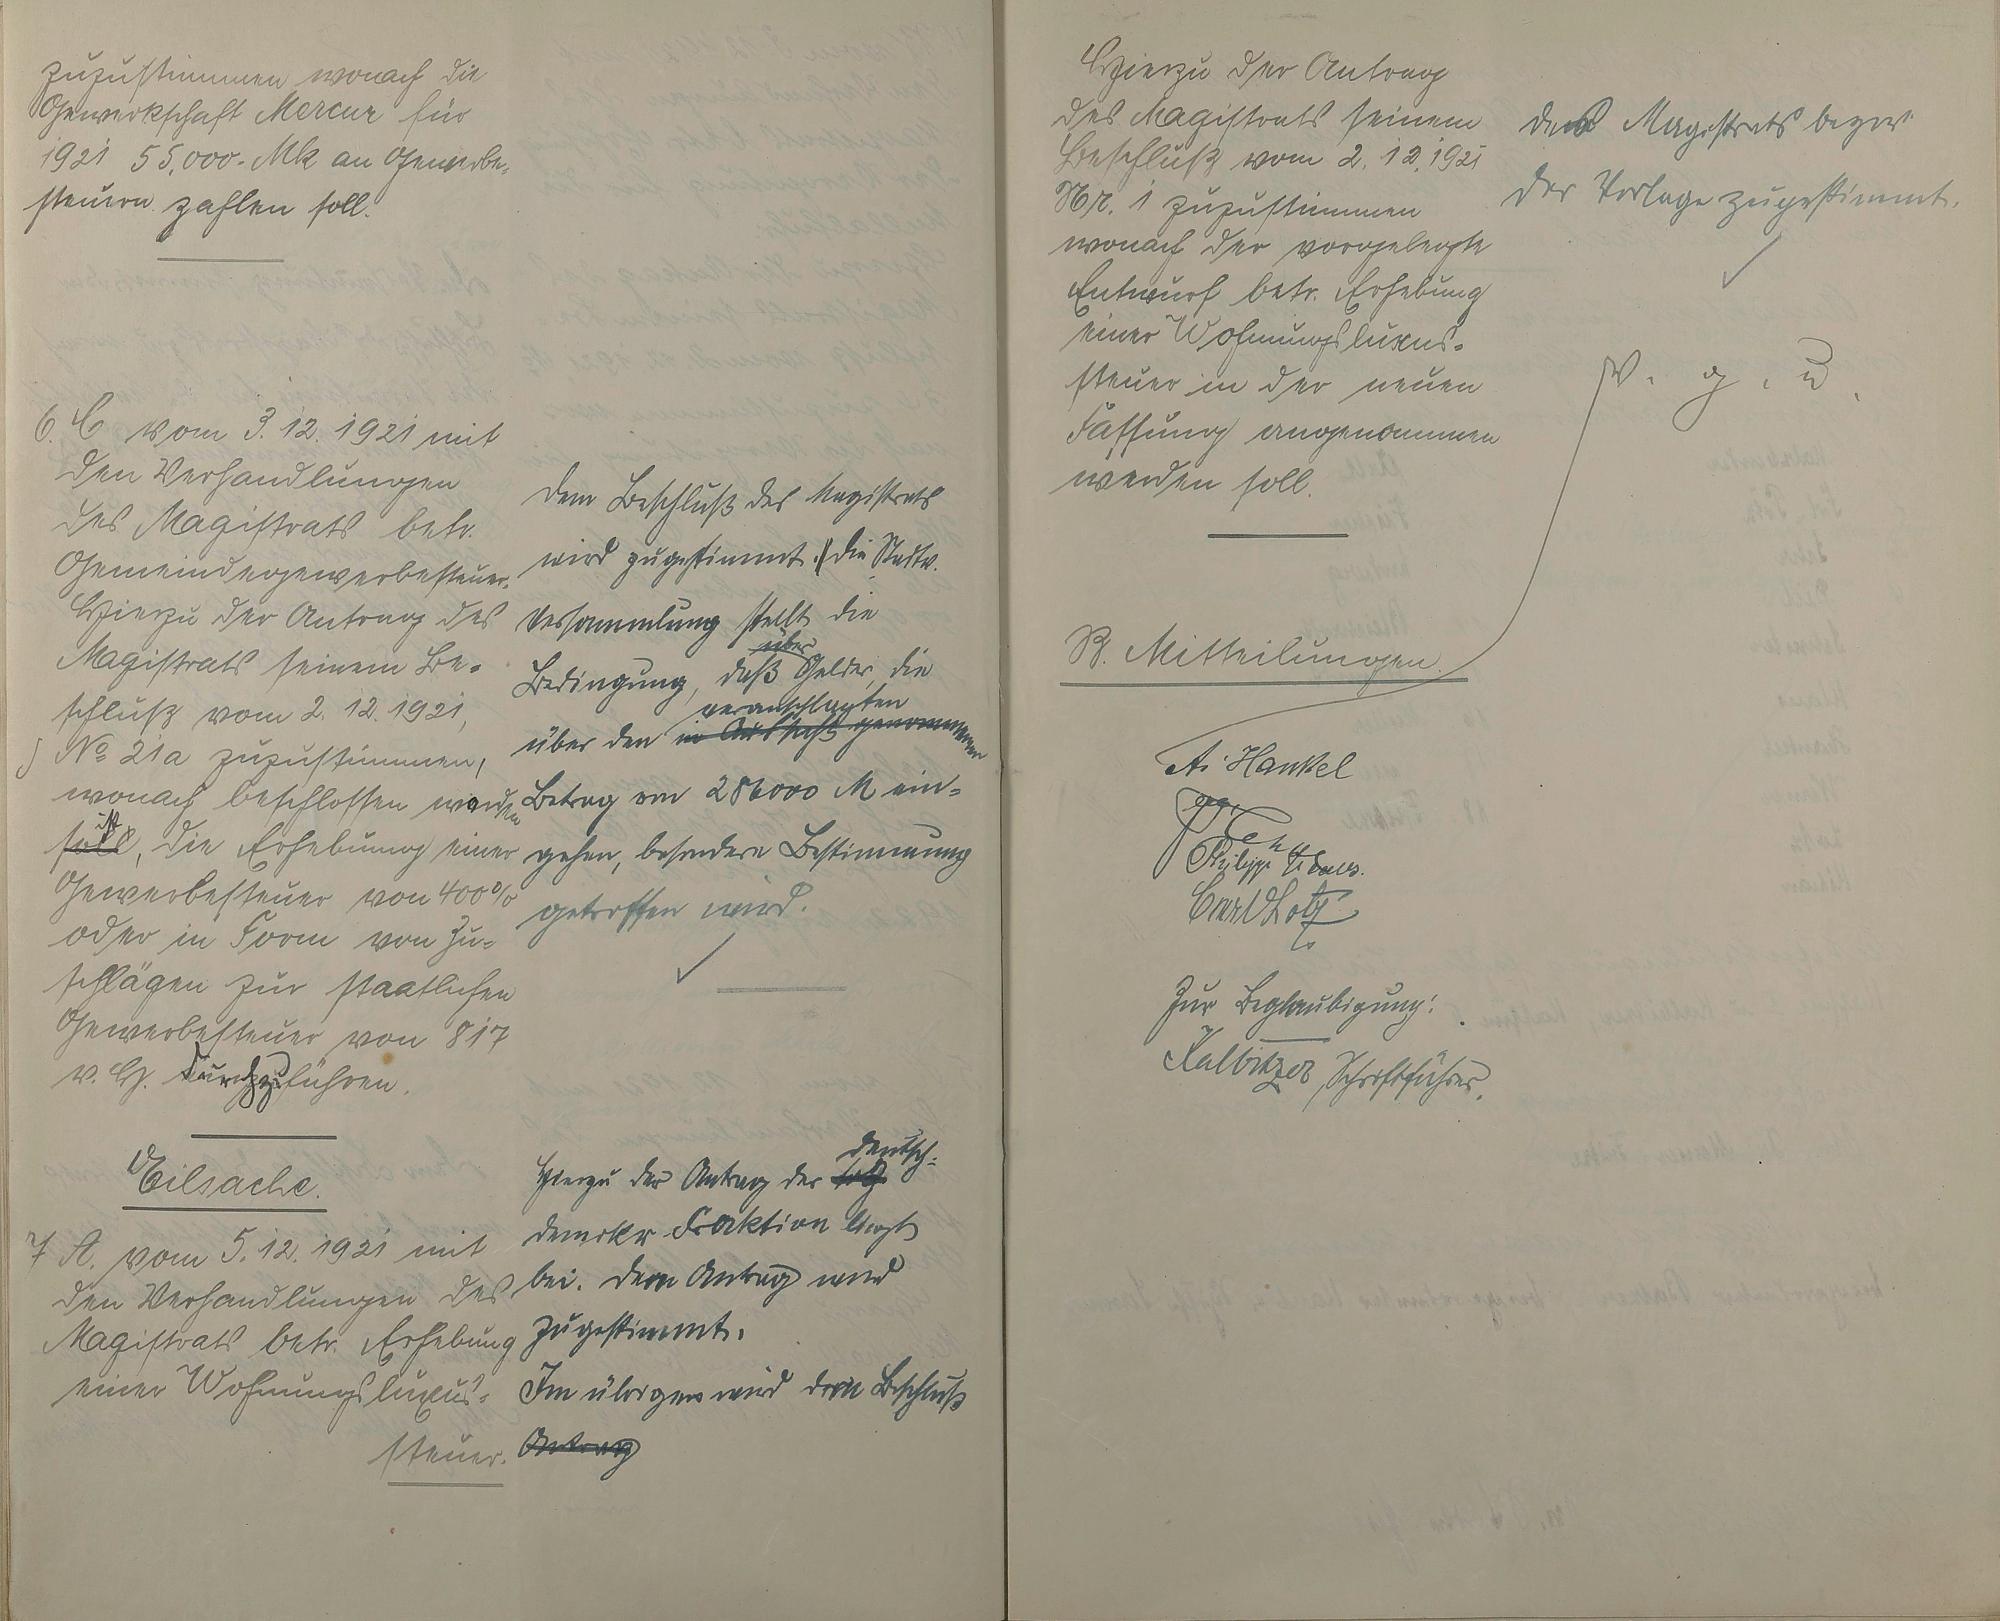 zuzustimmen wonach die
Gewerkschaft Mercur für
1921 55,000.- Mk an Gewerbe-
steuern zahlen soll.
6. C vom 3.12.1921 mit
den Verhandlungen
des Magistrats betr.
Gemeindegewerbesteuer.
Hierzu der Antrag des
Magistrats seinem Be-
schluß vom 2.12.1921,
No 21a zuzustimmen,
wonach beschlossen worden
ist
soll, die Erhebung einer
Gewerbesteuer von 400%
oder in Form von Zu-
schlägen zur staatlichen
Gewerbesteuer von 817
v. H. durchzuführen.
Dem Beschluß des Magistrats
wird zugestimmt. Die Stadtv.
Versammlung stellt die
Bedingung, daß über Gelder, die
veranschlagten
über den in Aussicht genommenen
Betrag von 286000 M ein-
gehen, besondere Bestimmung
getroffen wird.
Eilsache.
7 A. vom 5.12.1921 mit
den Verhandlungen des
Magistrats betr. Erhebung
einer Wohnungsluxus-
steuer.
deutsch-
Hierzu der Antrag der
demokr Fraktion liegt
bei. Dem Antrag wird
zugestimmt.
Im übrigen wird dem Beschluß
Antrag
Hierzu der Antrag
des Magistrats seinem
Beschluß vom 2.12.1921
Nr. 1 zuzustimmen
wonach der vorgelegte
Entwurf betr. Erhebung
einer Wohnungsluxus-
steuer in der neuen
Fassung angenommen
werden soll.
des Magistrats bezw.
der Vorlage zugestimmt.
v. g. u.
B. Mitteilungen.
A. Hankel
Philipp
Carl Lotz
Zur Beglaubigung:
Kalbitzer Schriftführer.